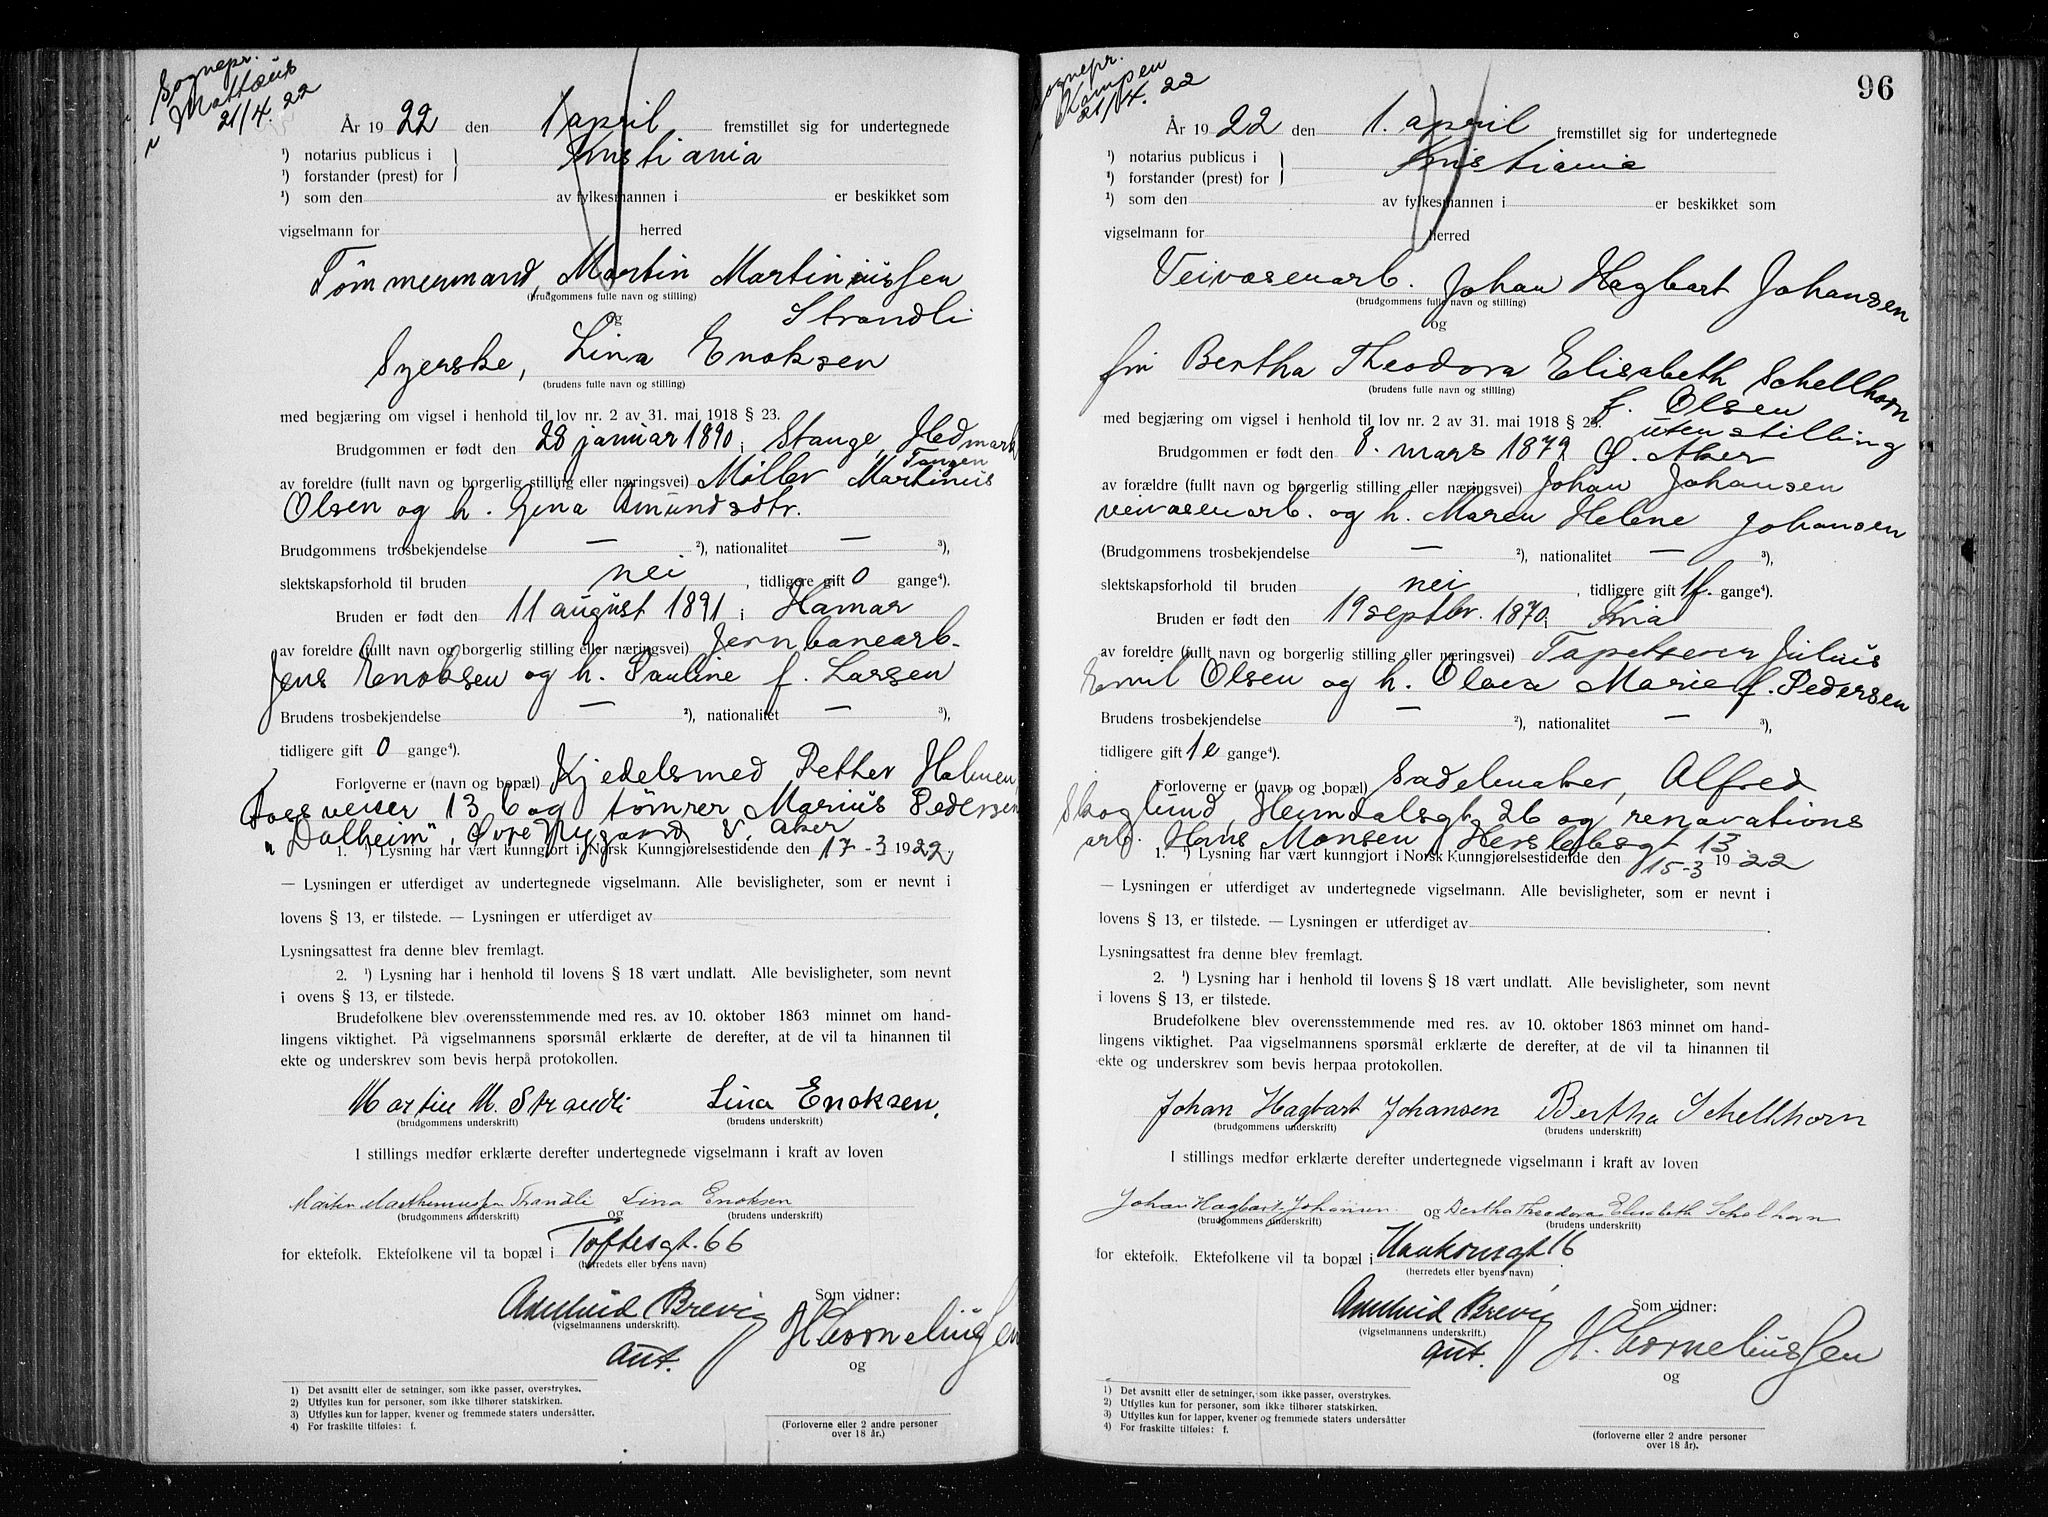 Sognepr.
i Mattæus
21/4. 22
År 1922 den 1 april fremstillet sig for undertegnede
¹) notarius publicus i } Kristiania
¹) forstander (prest) for
¹) som den av fylkesmannen i er beskikket som
vigselmann for herred
Tømmermand, Martin Martiniussen
(brudgommens fulle navn og stilling)
og Strandli
Syerske, Lina Enoksen
(brudens fulle navn og stilling)
med begjæring om vigsel i henhold til lov nr. 2 av 31. mai 1918 § 23.
Brudgommen er født den 28 januar 1890 i Stange, Hedmark
Tangen
av foreldre (fullt navn og borgerlig stilling eller næringsvei) Møller Martinus
Olsen og h. Gina Amundsdtr.
Brudgommens trosbekjendelse — ²), nationalitet — ³),
slektskapsforhold til bruden nei, tidligere gift 0 gange⁴).
Bruden er født den 11 august 1891 i Hamar
av foreldre (fullt navn og borgerlig stilling eller næringsvei) Jernbanearb.
Jens Enoksen og h. Pauline f. Larsen
Brudens trosbekjendelse — ²), nationalitet — ³),
tidligere gift 0 gange⁴).
Forloverne er (navn og bopæl) Kjedelsmed Petter Halmen,
veien 13 b og tømrer Marius Pedersen
"Dalheim", Øvre Nygaard V. Aker
1. ¹) Lysning har vært kunngjort i Norsk Kunngjørelsestidende den 17-3 1922.
— Lysningen er utferdiget av undertegnede vigselmann. Alle bevisligheter, som er nevnt i
lovens § 13, er tilstede. — Lysningen er utferdiget av
Lysningsattest fra denne blev fremlagt.
2. ¹) Lysning har i henhold til lovens § 18 vært undlatt. Alle bevisligheter, som nevnt
i ovens § 13, er tilstede.
Brudefolkene blev overensstemmende med res. av 10. oktober 1863 minnet om hand-
lingens viktighet. På vigselmannens spørsmål erklærte de derefter, at de vil ta hinannen til
ekte og underskrev som bevis herpå protokollen.
Martin M. Strandli Lina Enoksen.
(brudgommens underskrift) (brudens underskrift)
I stillings medfør erklærte derefter undertegnede vigselmann i kraft av loven
Martin Strandli Lina Enoksen
(brudgommens underskrift) og (brudens underskrift)
for ektefolk. Ektefolkene vil ta bopæl i Toftesgt. 66
(herredets eller byens navn)
Som vidner:
Brevig H Corneliussen
(vigselmannens underskrift).
aut.
og
1) Det avsnitt eller de setninger, som ikke passer, overstrykes.
2) Utfylles kun for personer, som ikke tilhører statskirken.
3) Utfylles kun for lapper, kvener og fremmede staters undersåtter.
4) For fraskilte tilføies: f.
(Forloverne eller 2 andre personer
over 18 år.)
96
Sognepr.
i Kampen
21/4. 22
År 1922 den 1. april fremstillet sig for undertegnede
¹) notarius publicus i } Kristiania
¹) forstander (prest) for
¹) som den av fylkesmannen i er beskikket som
vigselmann for herred
Veivæsenarb. Johan Hagbart Johansen
(brudgommens fulle navn og stilling)
og
fru Bertha Theodora Elisabeth Schellhorn
(brudens fulle navn og stilling)
f. Olsen
med begjæring om vigsel i henhold til lov nr. 2 av 31. mai 1918 § 23.
uten stilling
Brudgommen er født den 8. mars 1872 Ø. Aker
av forældre (fullt navn og borgerlig stilling eller næringsvei) Johan Johansen
veivæsenarb. og h. Maren Helene Johansen
(Brudgommens trosbekjendelse — ²), nationalitet — ³),
slektskapsforhold til bruden nei, tidligere gift 1 f. gange⁴).
Bruden er født den 19 septbr. 1870 i Kria
av foreldre (fullt navn og borgerlig stilling eller næringsvei) Tapetserer Julius
Emil Olsen og h. Olava Marie f. Pedersen
Brudens trosbekjendelse — ²), nationalitet — ³),
tidligere gift 1 e gange⁴).
Forloverne er (navn og bopæl) Sadelmaker, Alfred
Skoglund, Heimdalsgt 26 og renovations
arb. Hans Monsen Herslebsgt 13
1. ¹) Lysning har vært kunngjort i Norsk Kunngjørelsestidende den 15-3 1922
— Lysningen er utferdiget av undertegnede vigselmann. Alle bevisligheter, som er nevnt i
lovens § 13, er tilstede. — Lysningen er utferdiget av
Lysningsattest fra denne blev fremlagt.
2. ¹) Lysning har i henhold til lovens § 18 vært undlatt. Alle bevisligheter, som nevnt
i lovens § 13, er tilstede.
Brudefolkene blev overensstemmende med res. av 10. oktober 1863 minnet om hand-
lingens viktighet. Paa vigselmannens spørsmål erklærte de derefter, at de vil ta hinannen til
ekte og underskrev som bevis herpaa protokollen.
Johan Hagbart Johansen Bertha Schellhorn
(brudgommens underskrift) (brudens underskrift)
I stillings medfør erklærte derefter undertegnede vigselmann i kraft av loven
Johan Hagbart Johansen og Bertha Theodora Elisabeth Schelhorn
(brudgommens underskrift) (brudens underskrift)
for ektefolk. Ektefolkene vil ta bopæl i Haakonsgt 16
(herredets eller byens navn)
Som vidner:
Brevig H. Corneliussen
(vigselmannens underskrift)
aut.
og
1) Det avsnitt eller de setninger, som ikke passer, overstrykes.
2) Utfylles kun for personer, som ikke tilhører statskirken.
3) Utfylles kun for lapper, kvener og fremmede staters undersåtter
4) For fraskilte tilføies: f.
(forloverne eller 2 andre personer
over 18 år).